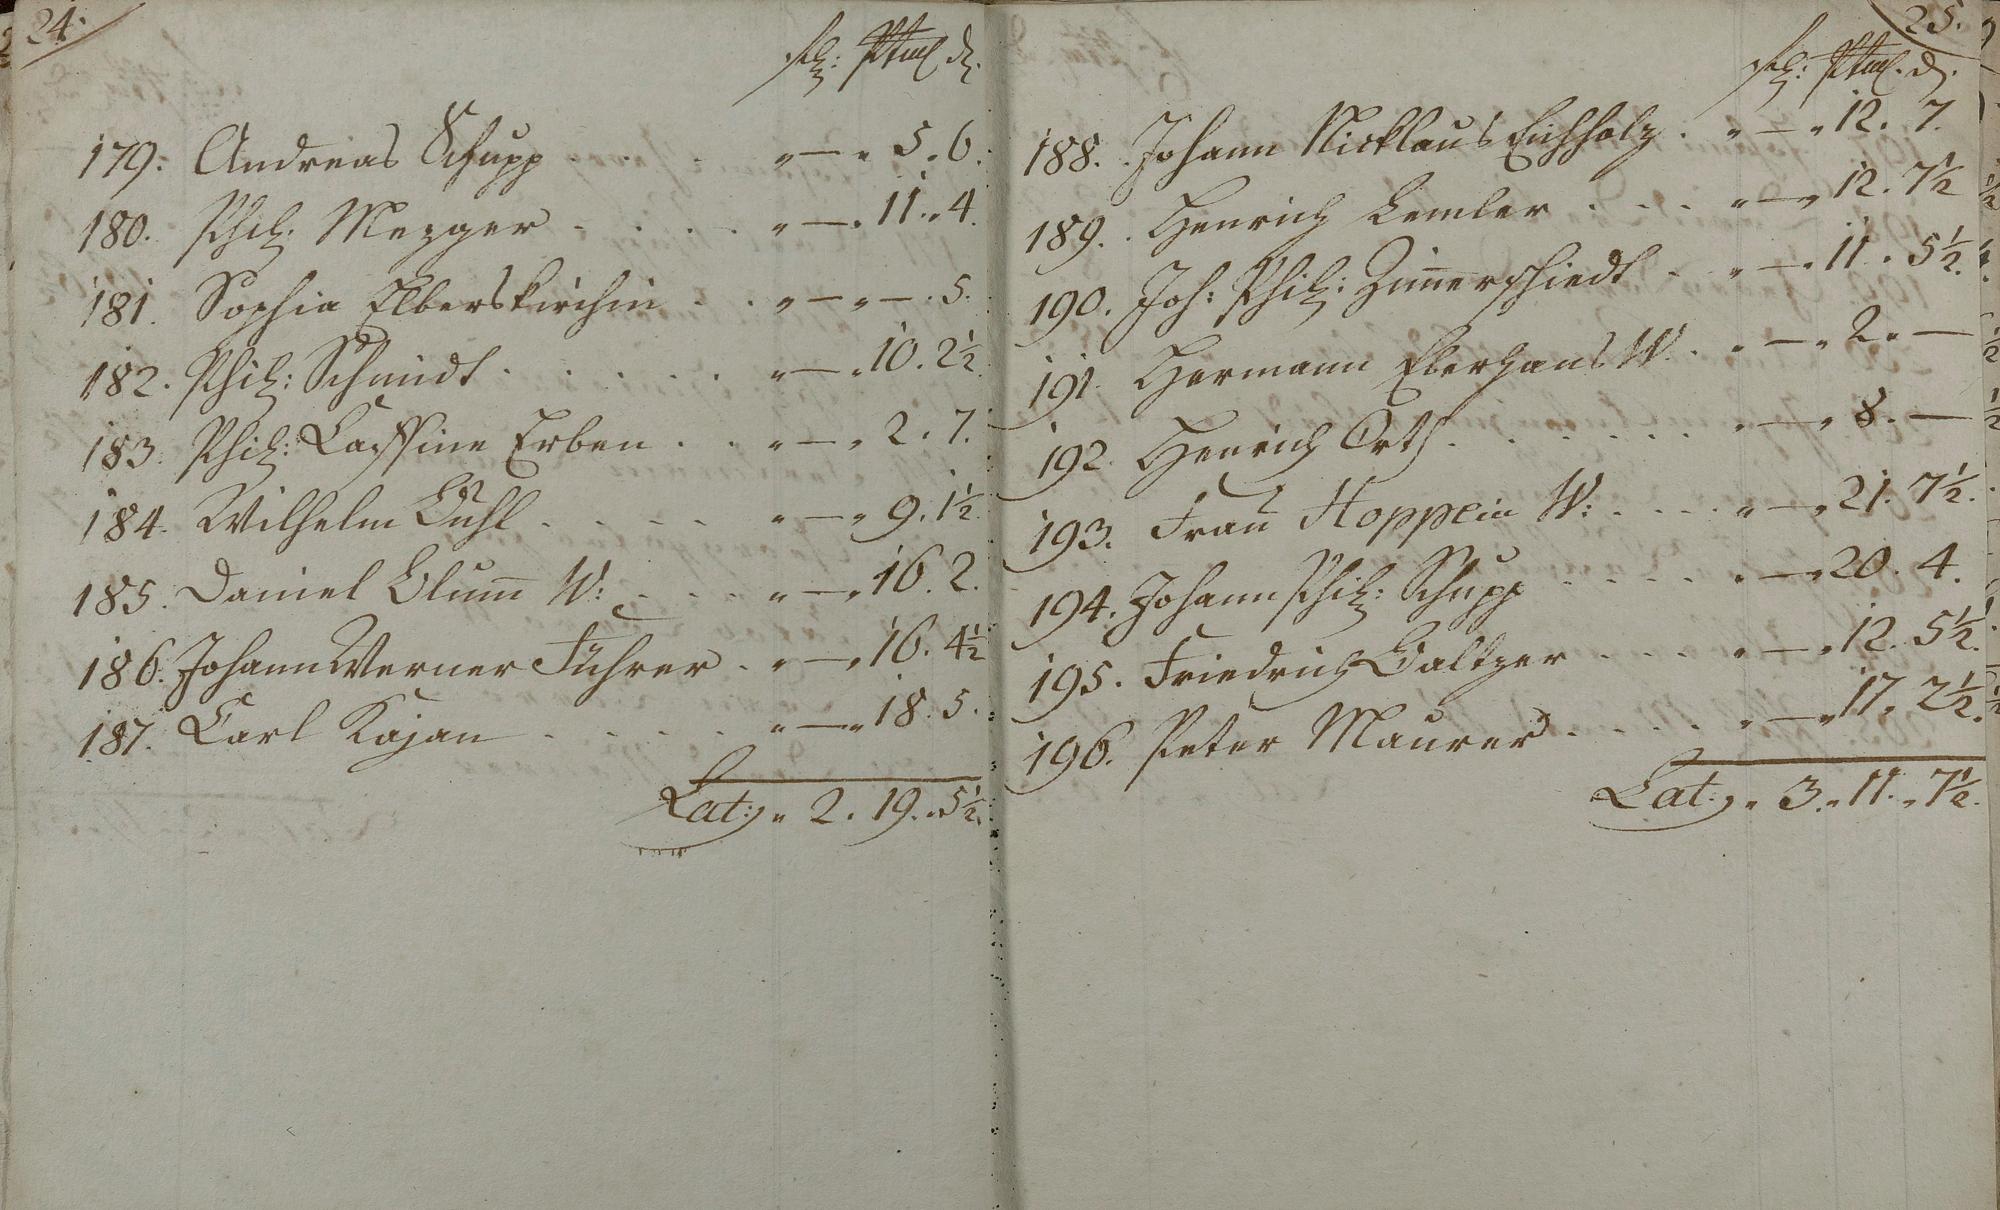 24.
fl: Albus d.
179. Andreas Schupp . . . . " — " 5. 6.
180. Phil: Mezger . . . . " — " 11. 4.
181. Sophia Elberskirchin . . " — " — . 5.
182. Phil: Schmidt . . . . . " — " 10. 2½.
183. Phil: Cassine Erben . . " — " 2. 7.
184. Wilhelm Buhl . . . . " — " 9. 1½.
185. Daniel Blum̅ W: . . . . " — " 16. 2.
186. Johann Werner Führer . " — " 16. 4½
187. Carl Kajan . . . . . " — " 18. 5.
Lat: " 2. 19. 5½.
25.
fl: Albus. d.
188. Johann Nicklaus Eichholz . " — " 12. 7.
189. Henrich Lemler . . . . " — " 12. 7½
190. Joh: Phil: Zim̅erschiedt . " — " 11. 5½.
191. Hermann Eberhans W. . " — " 2. —
192. Henrich Orth . . . . . . " — " 8. —
193. Frau Hoppein W: . . . . " — " 21. 7½.
194. Johann Phil: Schupp . . . . " — " 20. 4.
195. Friedrich Baltzer . . . . " — " 12. 5½.
196. Peter Maurer . . . . . " — " 17. 2½.
Lat: " 3. 11. 7½.